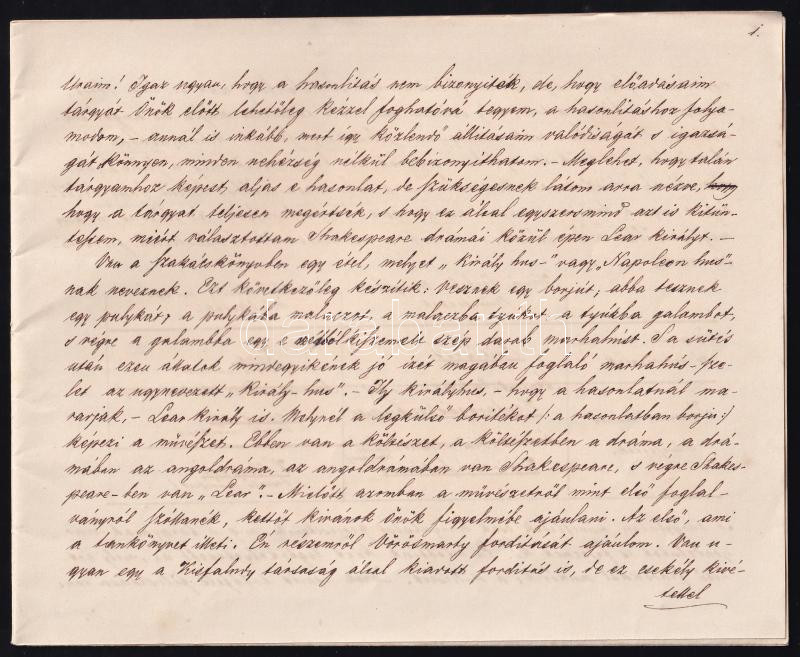 1.
Uraim! Igaz ugyan, hogy a hasonlitás nem bizonyiték, de, hogy előadásaim
tárgyát Önök előtt lehetőleg kézzel foghatóvá tegyem, a hasonlitáshoz folya-
modom, - annál is inkább, mert igy közlendő állitásaim valódiságát s igazsá-
gát könnyen, minden nehézség nélkül bebizonyithatom. - Meglehet, hogy talán
tárgyamhoz képest, aljas e hasonlat, de szükségesnek látom arra nézve, hogy
hogy a tárgyat teljesen megértsék, s hogy ez által egyszersmind azt is kitün-
tessem, miért választottam Shakespeare drámái közül épen Lear királyt. -
Van a szakácskönyvben egy étel, melyet „Király hus-" vagy „Napoleon hus"-
nak neveznek. Ezt következőleg készitik: vesznek egy borjút; abba tesznek
egy pulykát, a pulykába malaczot, a malaczba tyúkot, a tyúkba galambot,
s végre a galambba egy e kiszemelt szép darab marhahúst. S a sütés
után ezen állatok mindegyikének jó izét magában foglaló marhahús-sze-
let az ugynevezett „Király-hus". - Ily királyhus, - hogy a hasonlatnál ma-
rarjak, - Lear király is. Melynél a legkülső boritékot /: a hasonlatban borju :/
képezi a művészet. Ebben van a költészet, a költészetben a dráma, a drá-
mában az angoldráma, az angoldrámában van Shakespeare, s végre Shakes-
peare-ben van „Lear". - Mielőtt azonban a művészetről mint első foglal-
ványról szóllanék, kettőt kivánok Önök figyelmébe ajánlani. Az első, ami
a tankönyvet illeti. Én részemről Vörösmarty forditását ajánlom. Van u-
gyan egy a Kisfaludy társaság által kiadott forditás is, de ez csekély kivé-
tellel
darabanth